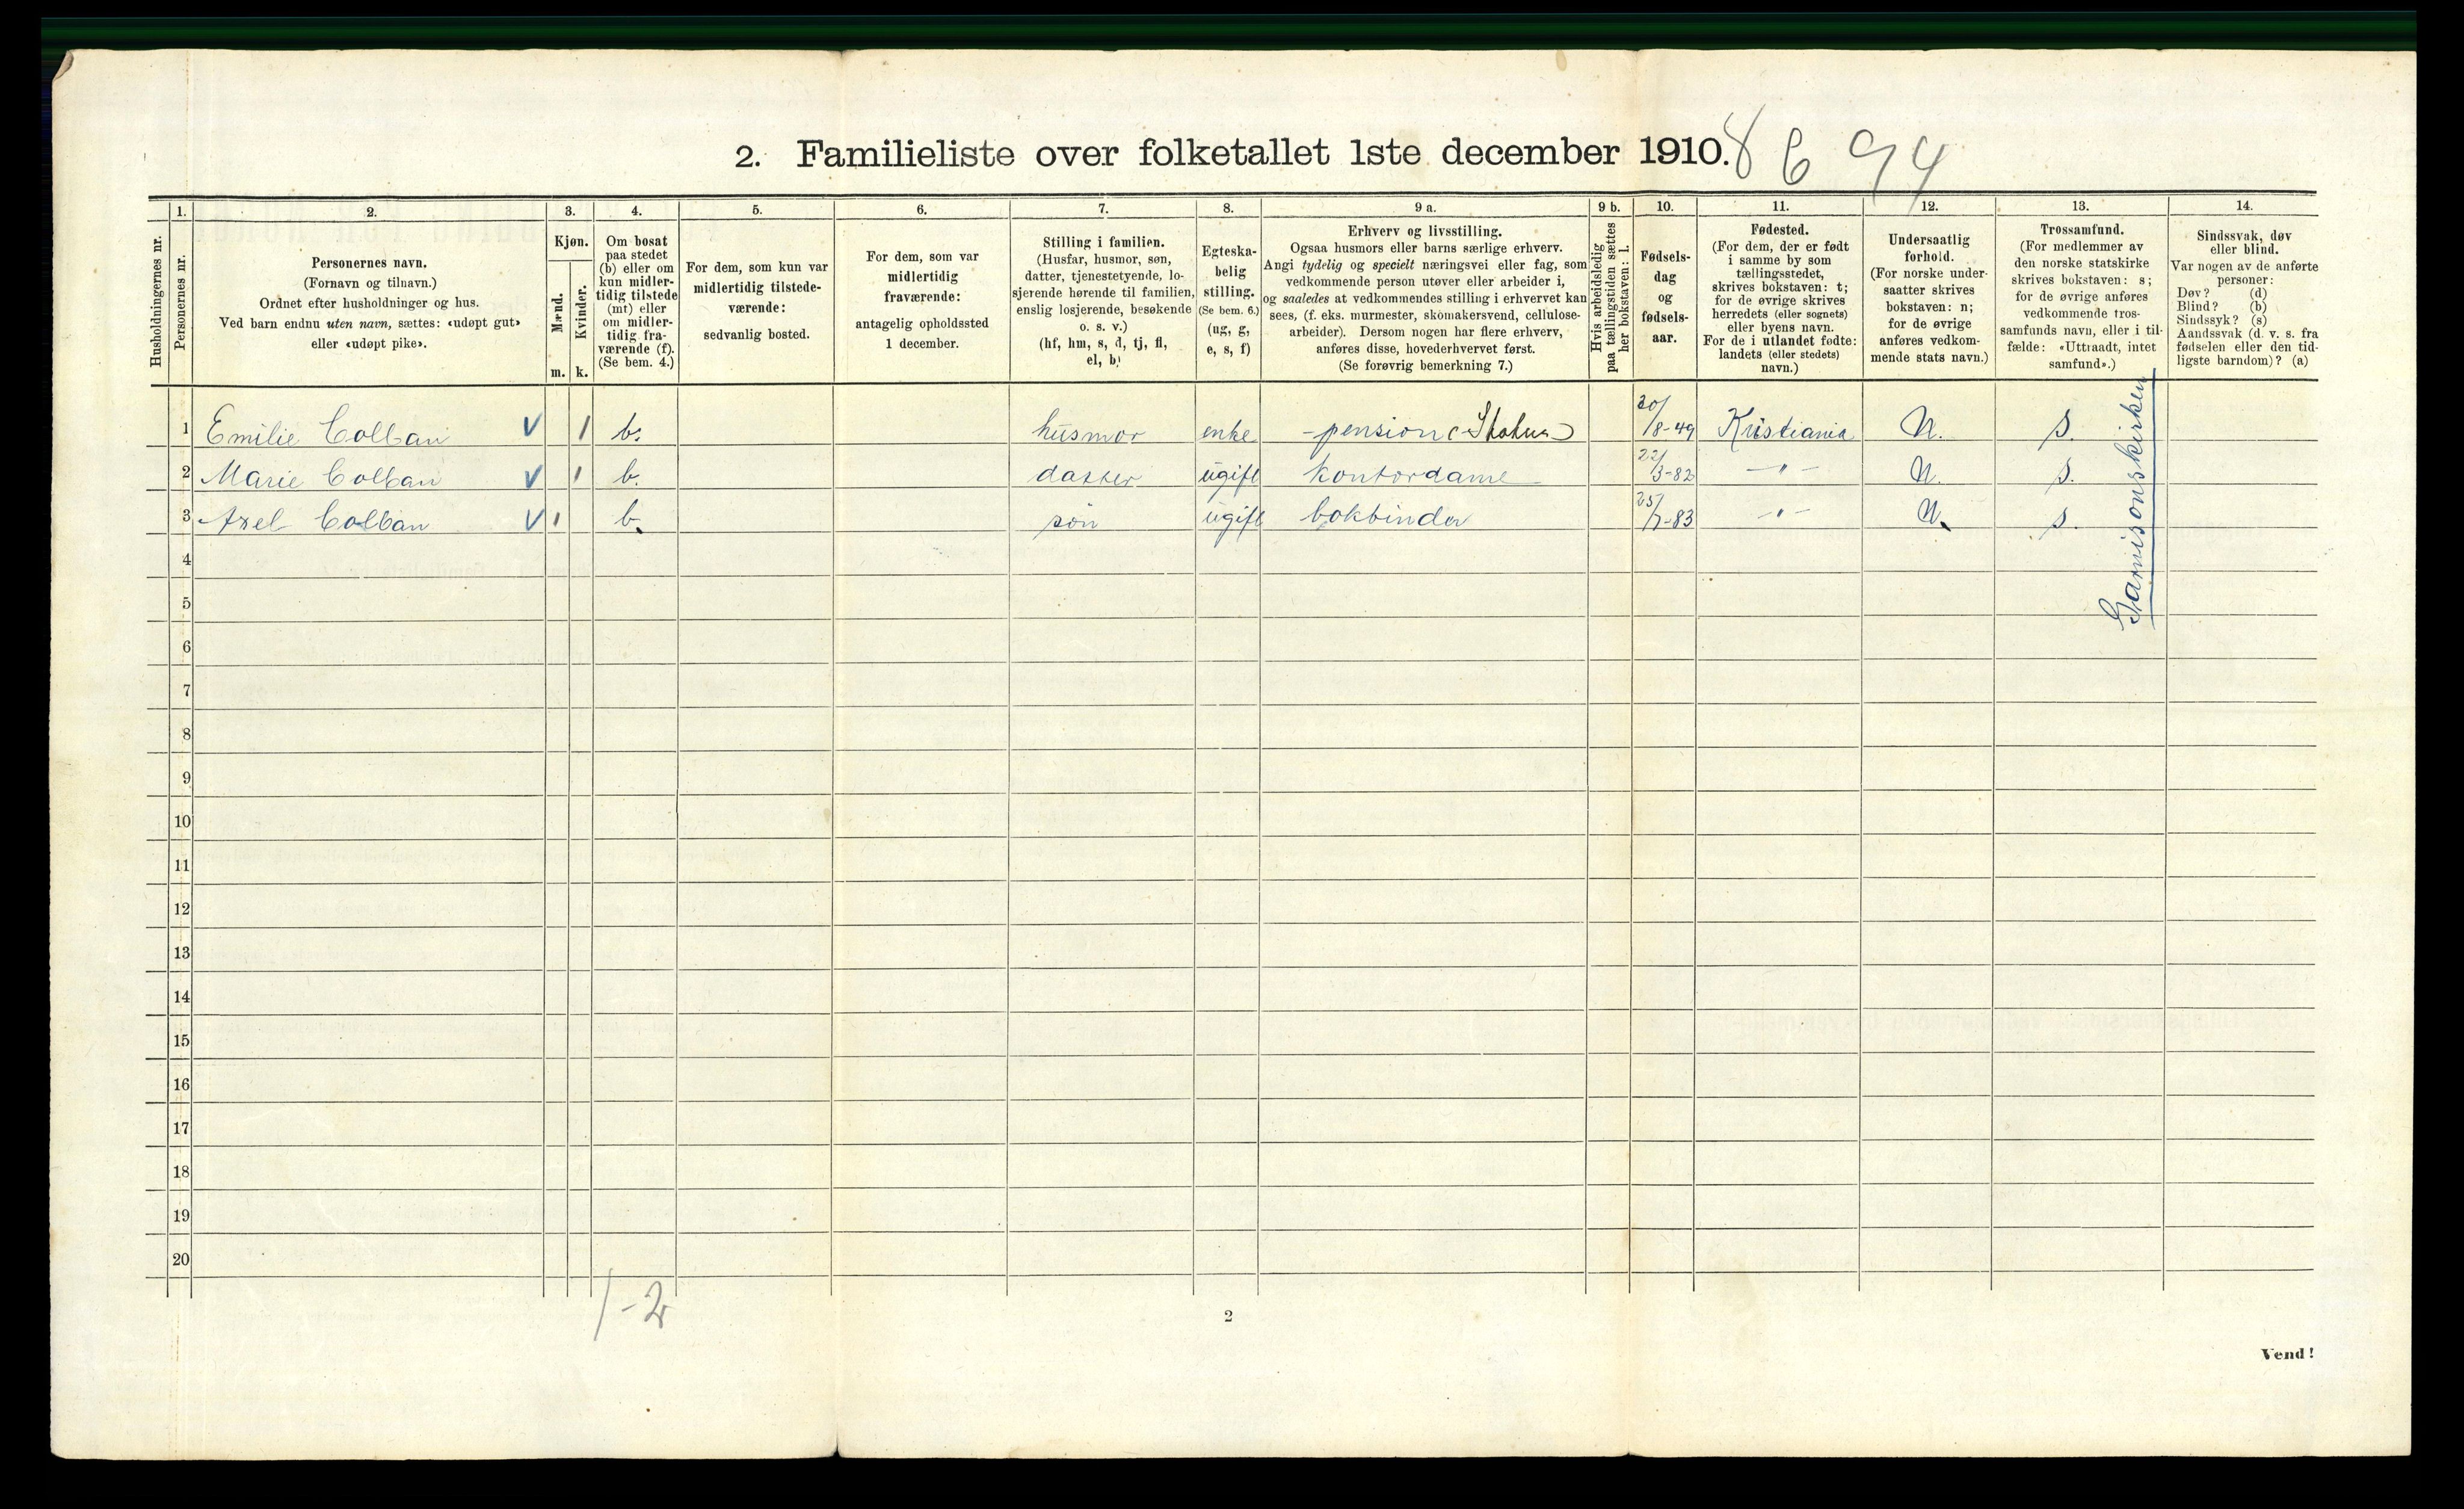 2. Familieliste over folketallet 1ste december 1910.
8 6 94
Husholdningernes nr.
1.
Personernes nr.
2.
Personernes navn.
(Fornavn og tilnavn.)
Ordnet efter husholdninger og hus.
Ved barn endnu uten navn, sættes: «udøpt gut»
eller «udøpt pike».
3.
Kjøn.
Mænd.
Kvinder.
m. k.
4.
Om bosat
paa stedet
(b) eller om
kun midler-
tidig tilstede
(mt) eller
om midler-
tidig fra-
værende (f).
(Se bem. 4.)
5.
For dem, som kun var
midlertidig tilstede-
værende:
sedvanlig bosted.
6.
For dem, som var
midlertidig
fraværende:
antagelig opholdssted
1 december.
7.
Stilling i familien.
(Husfar, husmor, søn,
datter, tjenestetyende, lo-
sjerende hørende til familien,
enslig losjerende, besøkende
o. s. v.)
(hf, hm, s, d, tj, fl,
el, b)
8.
Egteska-
belig
stilling.
(Se bem. 6.)
(ug, g,
e, s, f)
9 a.
Erhverv og livsstilling.
Ogsaa husmors eller barns særlige erhverv.
Angi tydelig og specielt næringsvei eller fag, som
vedkommende person utøver eller arbeider i,
og saaledes at vedkommendes stilling i erhvervet kan
sees, (f. eks. murmester, skomakersvend, cellulose-
arbeider). Dersom nogen har flere erhverv,
anføres disse, hovederhvervet først.
(Se forøvrig bemerkning 7.)
9 b.
Hvis arbeidsledig
paa tællingstiden sættes
her bokstaven: l.
10.
Fødsels-
dag
og
fødsels-
aar.
11.
Fødested.
(For dem, der er født
i samme by som
tællingsstedet,
skrives bokstaven: t;
for de øvrige skrives
herredets (eller sognets)
eller byens navn.
For de i utlandet fødte:
landets (eller stedets)
navn.)
12.
Undersaatlig
forhold.
(For norske under-
saatter skrives
bokstaven: n;
for de øvrige
anføres vedkom-
mende stats navn.)
13.
Trossamfund.
(For medlemmer av
den norske statskirke
skrives bokstaven: s;
for de øvrige anføres
vedkommende tros-
samfunds navn, eller i til-
fælde: «Uttraadt, intet
samfund».)
14.
Sindssvak, døv
eller blind.
Var nogen av de anførte
personer:
Døv? (d)
Blind? (b)
Sindssyk? (s)
Aandssvak (d. v. s. fra
fødselen eller den tid-
ligste barndom)? (a)
1 Emilie Colban V 1 b. husmor enke -pension (Stokus) 20/8-49 Kristiania N. S.
2 Marie Colban V 1 b. datter ugift kontordame 22/3-82 -"- N. S.
3 Axel Colban V 1 b. søn ugift bokbinder 25/7-83 -"- N. S.
Garnisonskirken
4
5
6
7
8
9
10
11
12
13
14
15
16
17
18
19
20
1-2
2
Vend!